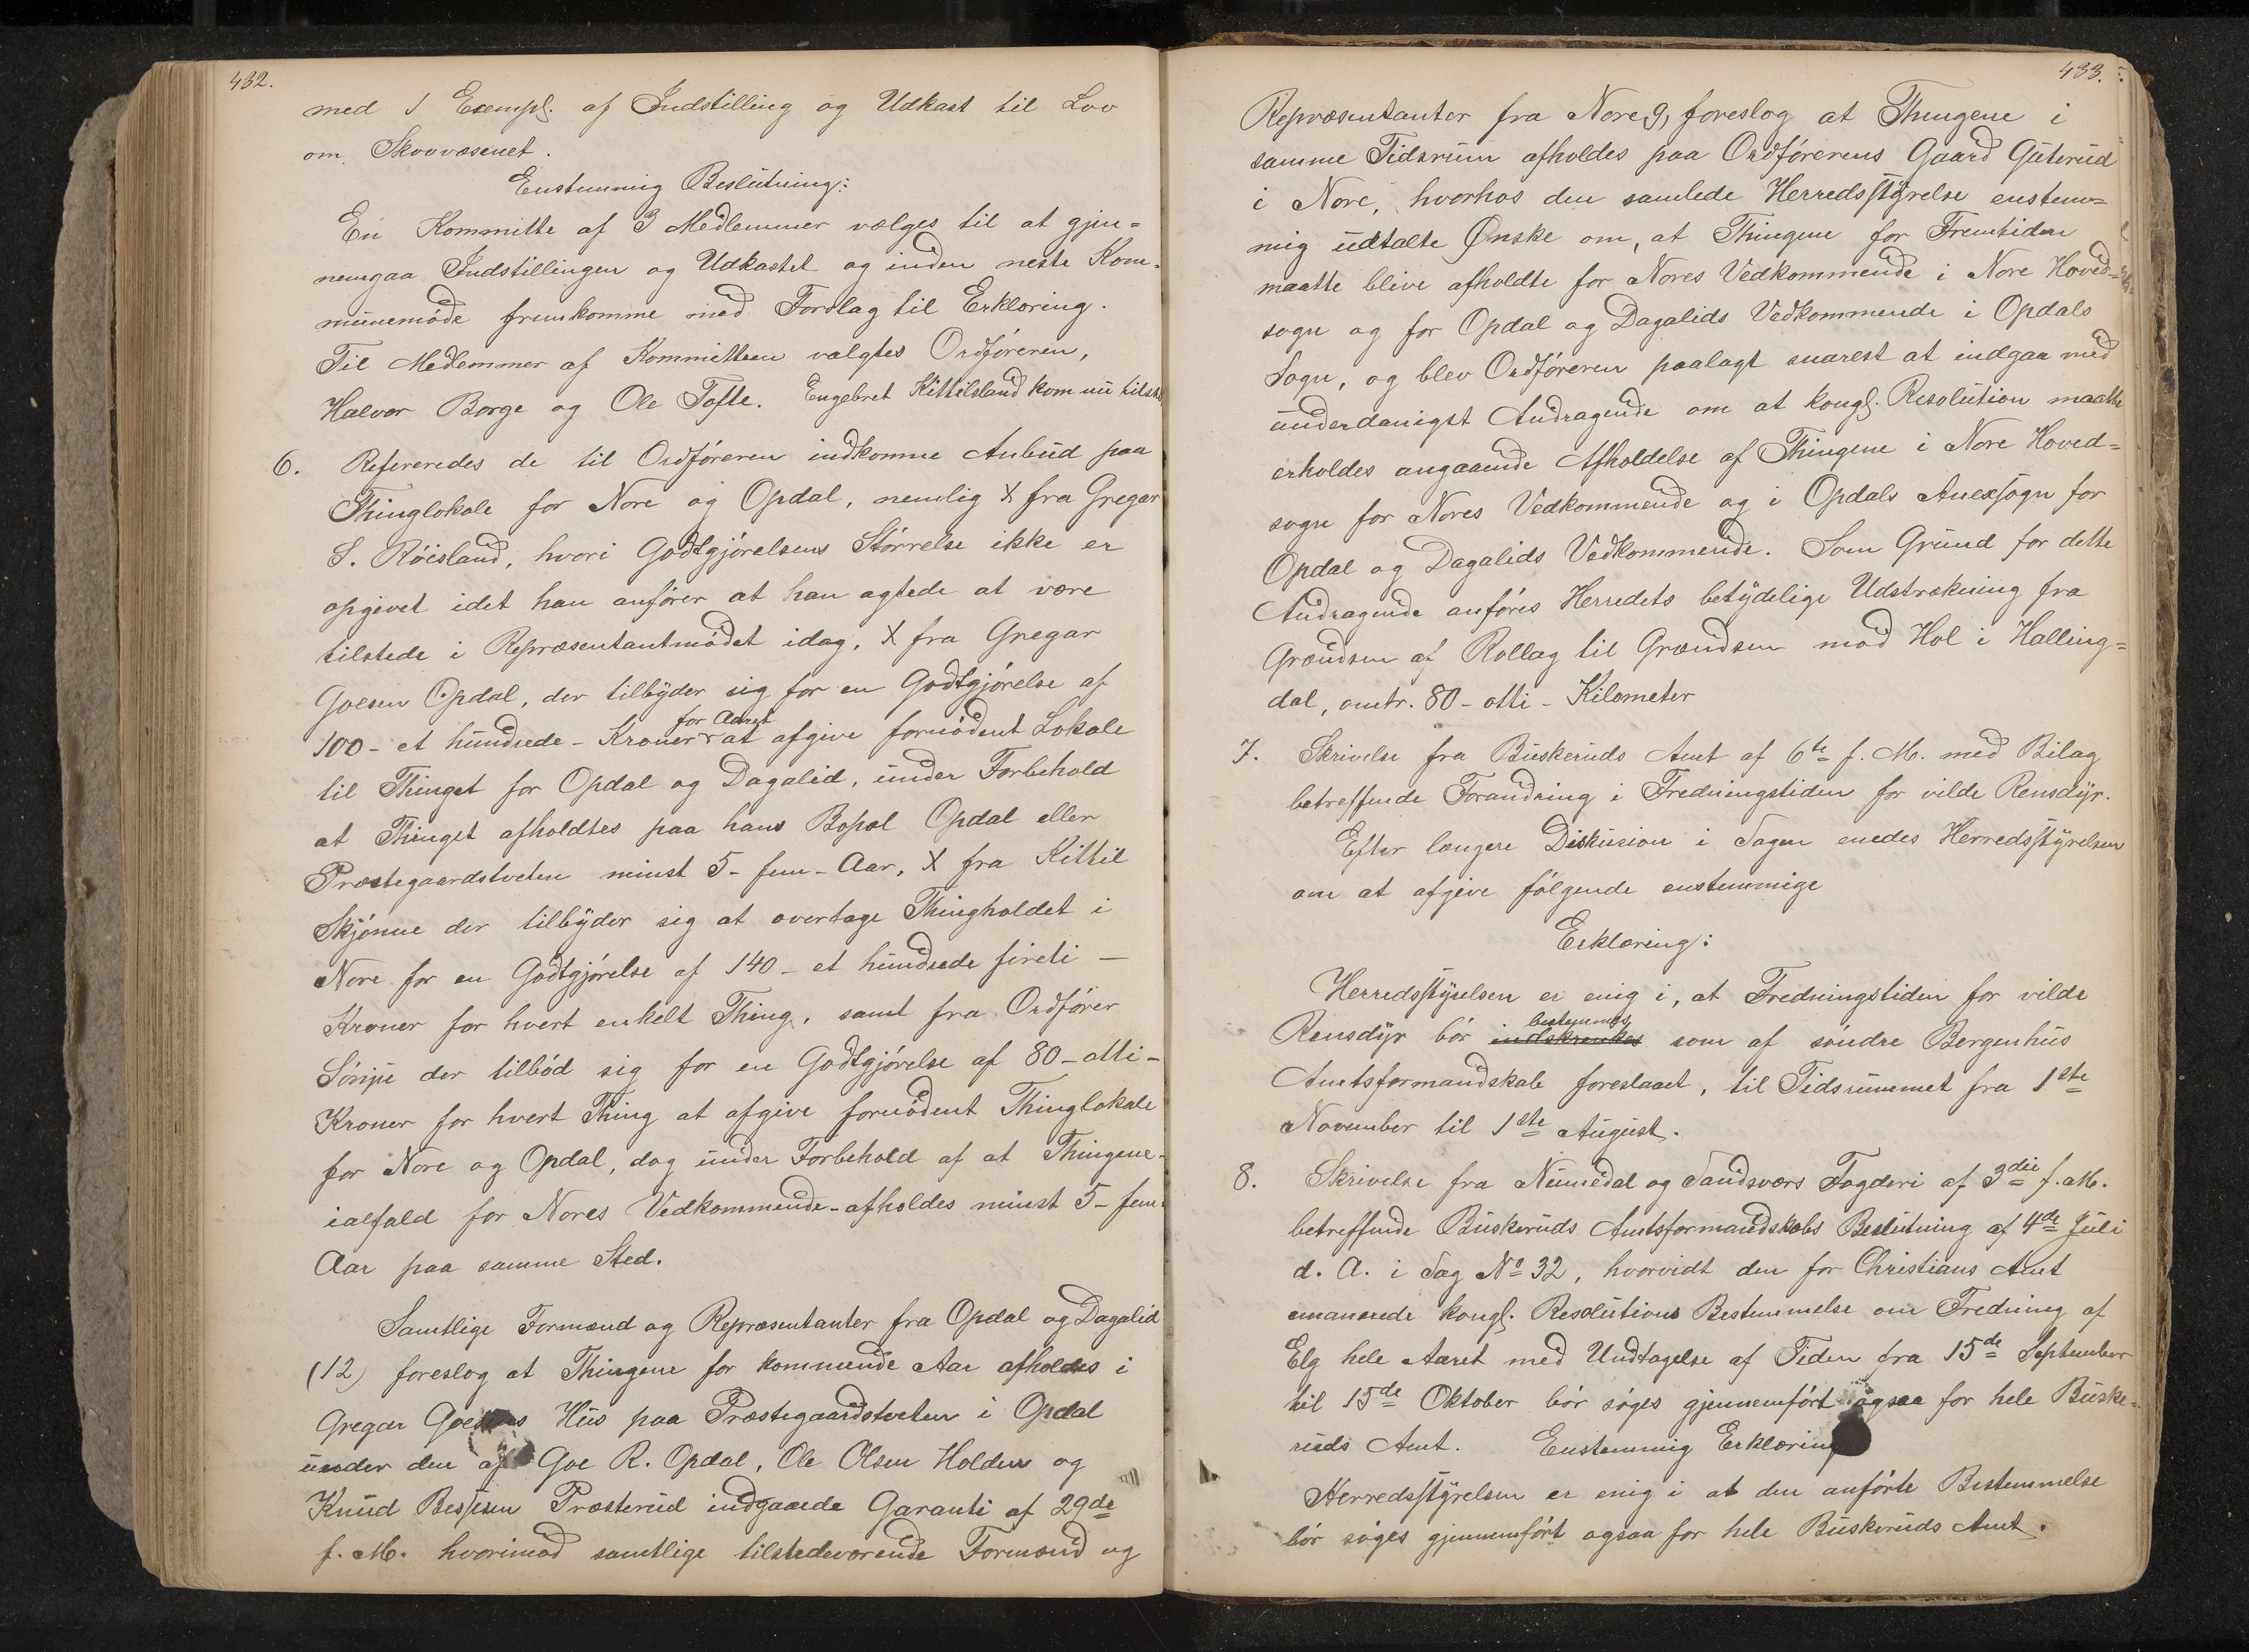 432.
med 1 Exempl. af Indstilling og Udkast til Lov
om Skovvæsenet.
Enstemmig Beslutning:
En Kommitte af 3 Medlemmer vælges til at gjen-
nemgaa Indstillingen og Udkastet og inden neste Kom-
munemöde fremkomme med Forslag til Erklæring.
Til Medlemmer af Kommitteen valgtes Ordföreren,
Halvor Borge og Ole Tofte. Engebret Kittilsland kom nu tilstede
6. Refereredes de til Ordföreren indkomne Anbud paa
Thinglokale for Nore og Opdal, nemlig X fra Gregar
S. Röisland, hvori Godtgjörelsens Störrelse ikke er
opgivet idet han anförer at han agtede at være
tilstede i Repræsentantmödet idag, X fra Gregar
Goesen Opdal, der tilbyder sig for en Godtgjörelse af
100 - et hundrede - Kroner for Aaret at afgive fornödent Lokale
til Thinget for Opdal og Dagalid, under Forbehold
at Thinget afholdtes paa hans Bopæl Opdal eller
Præstegaardstveten minst 5 - fem - Aar, X fra Kittil
Skjönne der tilbyder sig at overtage Thingholdet i
Nore for en Godtgjörelse af 140 - et hundrede firti -
Kroner for hvert enkelt Thing, samt fra Ordförer
Sönju der tilböd sig for en Godtgjörelse af 80 - otti -
Kroner for hvert Thing at afgive fornödent Thinglokale
for Nore og Opdal, dog under Forbehold af at Thingene -
ialfald for Nores Vedkommende - afholdes minst 5 - fem -
Aar paa samme Sted.
Samtlige Formænd og Repræsentanter fra Opdal og Dagalid
(12) foreslog at Thingene for kommende Aar afholdes i
Gregar Goesens Hus paa Præstegaardstveten i Opdal
under den af Goe R. Opdal, Ole Olsen Holden og
Knud Bessesen Præsterud indgaaede Garanti af 29de
f. M. hvorimod samtlige tilstedeværende Formænd og
433.
Repræsentanter fra Nore, 9, foreslog at Thingene i
samme Tidsrum afholdes paa Ordförerens Gaard Guterud
i Nore, hvorhos den samlede Herredsstyrelse enstem-
mig udtalte Ønske om, at Thingene for Fremtiden
maatte blive afholdte for Nores Vedkommende i Nore Hoved-
sogn og for Opdal og Dagalids Vedkommende i Opdals
Sogn, og blev Ordföreren paalagt snarest at indgaa med
underdanigst Andragende om at kongl. Resolution maatte
erholdes angaaende Afholdelse af Thingene i Nore Hoved-
sogn for Nores Vedkommende og i Opdals Anexsogn for
Opdal og Dagalids Vedkommende. Som Grund for dette
Andragende anföres Herredets betydelige Udstrækning fra
Grændsen af Rollag til Grændsen mod Hol i Halling-
dal, omtr. 80 - otti - Kilometer
7. Skrivelse fra Buskeruds Amt af 6te f. M. med Bilag
betreffende Forandring i Fredningstiden for vilde Rensdyr.
Efter længere Diskusion i Sagen enedes Herredsstyrelsen
om at afgive fölgende enstemmige
Erklæring:
Herredsstyrelsen er enig i, at Fredningstiden for vilde
Rensdyr bör indskrenkes bestemmes som af söndre Bergenhus
Amtsformandskab foreslaaet, til Tidsrummet fra 1ste
November til 1ste August.
8. Skrivelse fra Numedal og Sandsværs Fogderi af 3die f. M.
betreffende Buskeruds Amtsformandskabs Beslutning af 4de Juli
d. A. i Sag No 32, hvorvidt den for Christians Amt
emanerede kongl. Resolutions Bestemmelse om Fredning af
Elg hele Aaret med Undtagelse af Tiden fra 15de September
til 15de Oktober bör söges gjennemfört ogsaa for hele Buske-
ruds Amt. Enstemmig Erklæring
Herredsstyrelsen er enig i at den anförte Bestemmelse
bör söges gjennemfört ogsaa for hele Buskeruds Amt.